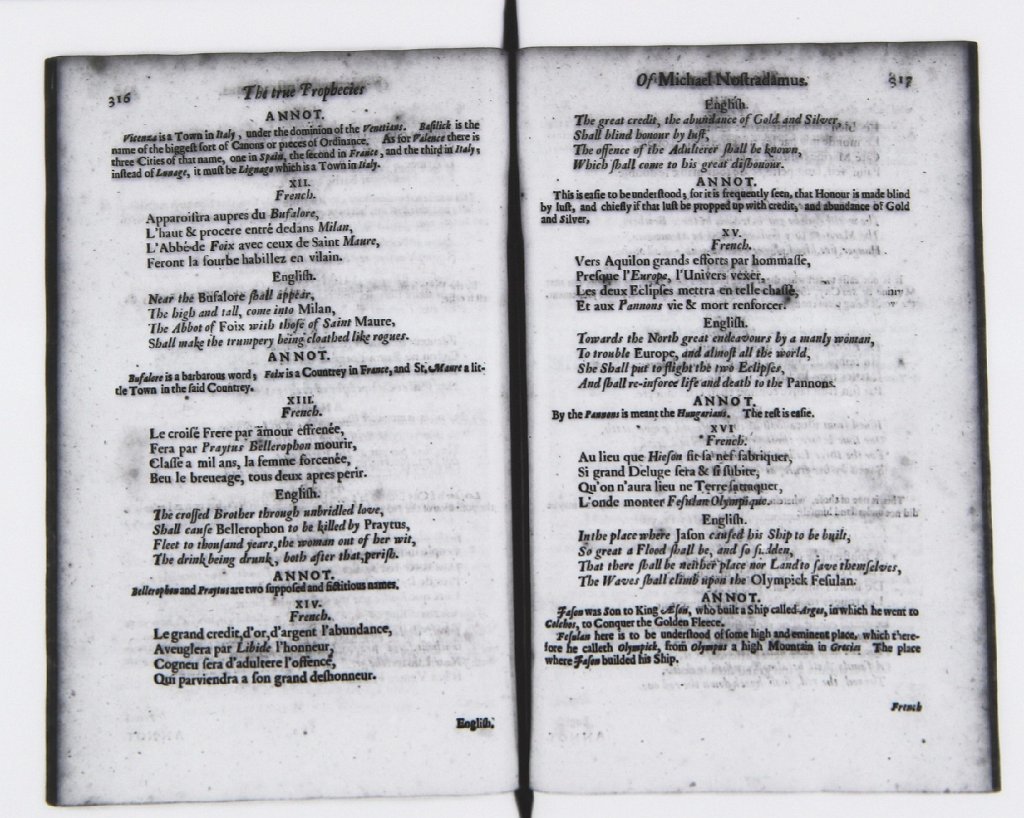 316
The true Prophecies
ANNOT.
Vicenza is a Town in Italy, under the dominion of the Venetians. Basilick is the
name of the biggest sort of Canons or pieces of Ordinance. As for Valence there is
three Cities of that name, one in Spain, the second in France, and the third in Italy;
instead of Lunage, it must be Lignage which is a Town in Italy.
XII.
French.
Apparoiſtra aupres du Bufalore,
L'haut & procere entré dedans Milan,
L'Abbé de Foix avec ceux de Saint Maure,
Feront la fourbe habillez en vilain.
English.
Near the Bufalore ſhall appear,
The high and tall, come into Milan,
The Abbot of Foix with thoſe of Saint Maure,
Shall make the trumpery being cloathed like rogues.
ANNOT.
Bufalore is a barbarous word; Foix is a Countrey in France, and St. Maure a lit-
tle Town in the ſaid Countrey.
XIII.
French.
Le croiſé Frere par amour effrenée,
Fera par Praytus Bellerophon mourir,
Claſſe a mil ans, la femme forcenée,
Beu le breueage, tous deux apres périr.
Engliſh.
The croſſed Brother through unbridled love,
Shall cauſe Bellerophon to be killed by Praytus,
Fleet to thouſand years, the woman out of her wit,
The drink being drunk, both after that, periſh.
ANNOT.
Bellerophon and Praytus are two ſuppoſed and fictitious names.
XIV.
French.
Le grand credit, d'or, d'argent l'abundance,
Aveuglera par Libide l'honneur,
Cogneu ſera d'adultere l'offence,
Qui parviendra a ſon grand deſhonneur.
Engliſh.
Of Michael Noſtradamus.
317
Engliſh.
The great credit, the abundance of Gold and Silver,
Shall blind honour by luſt,
The offence of the Adulterer ſhall be known,
Which ſhall come to his great diſhonour.
ANNOT.
This is eaſie to be underſtood, for it is frequently ſeen, that Honour is made blind
by luſt, and chiefly if that luſt be propped up with credit, and abundance of Gold
and Silver.
XV.
French.
Vers Aquilon grands efforts par hommaſſe,
Preſque l'Europe, l'Univers vexer,
Les deux Eclipſes mettra en telle chaſſe,
Et aux Pannons vie & mort renforcer.
Engliſh.
Towards the North great endeavours by a manly woman,
To trouble Europe, and almoſt all the world,
She Shall put to flight the two Eclipſes,
And ſhall re-inforce life and death to the Pannons.
ANNOT.
By the Pannons is meant the Hungarians. The reſt is eaſie.
XVI
French.
Au lieu que Hieſon fit ſa nef fabriquer,
Si grand Deluge ſera & ſi ſubite,
Qu'on n'aura lieu ne Terre ſattaquer,
L'onde monter Feſulan Olympique.
Engliſh.
In the place where Jaſon cauſed his Ship to be built,
So great a Flood ſhall be, and ſo ſudden,
That there ſhall be neither place nor Land to ſave themſelves,
The Waves ſhall climb upon the Olympick Feſulan.
ANNOT.
Jaſon was Son to King Æſon, who built a Ship called Argos, in which he went to
Colchos, to Conquer the Golden Fleece.
Feſulan here is to be underſtood of ſome high and eminent place, which there-
fore he calleth Olympick, from Olympus a high Mountain in Grecia. The place
where Jaſon builded his Ship.
French